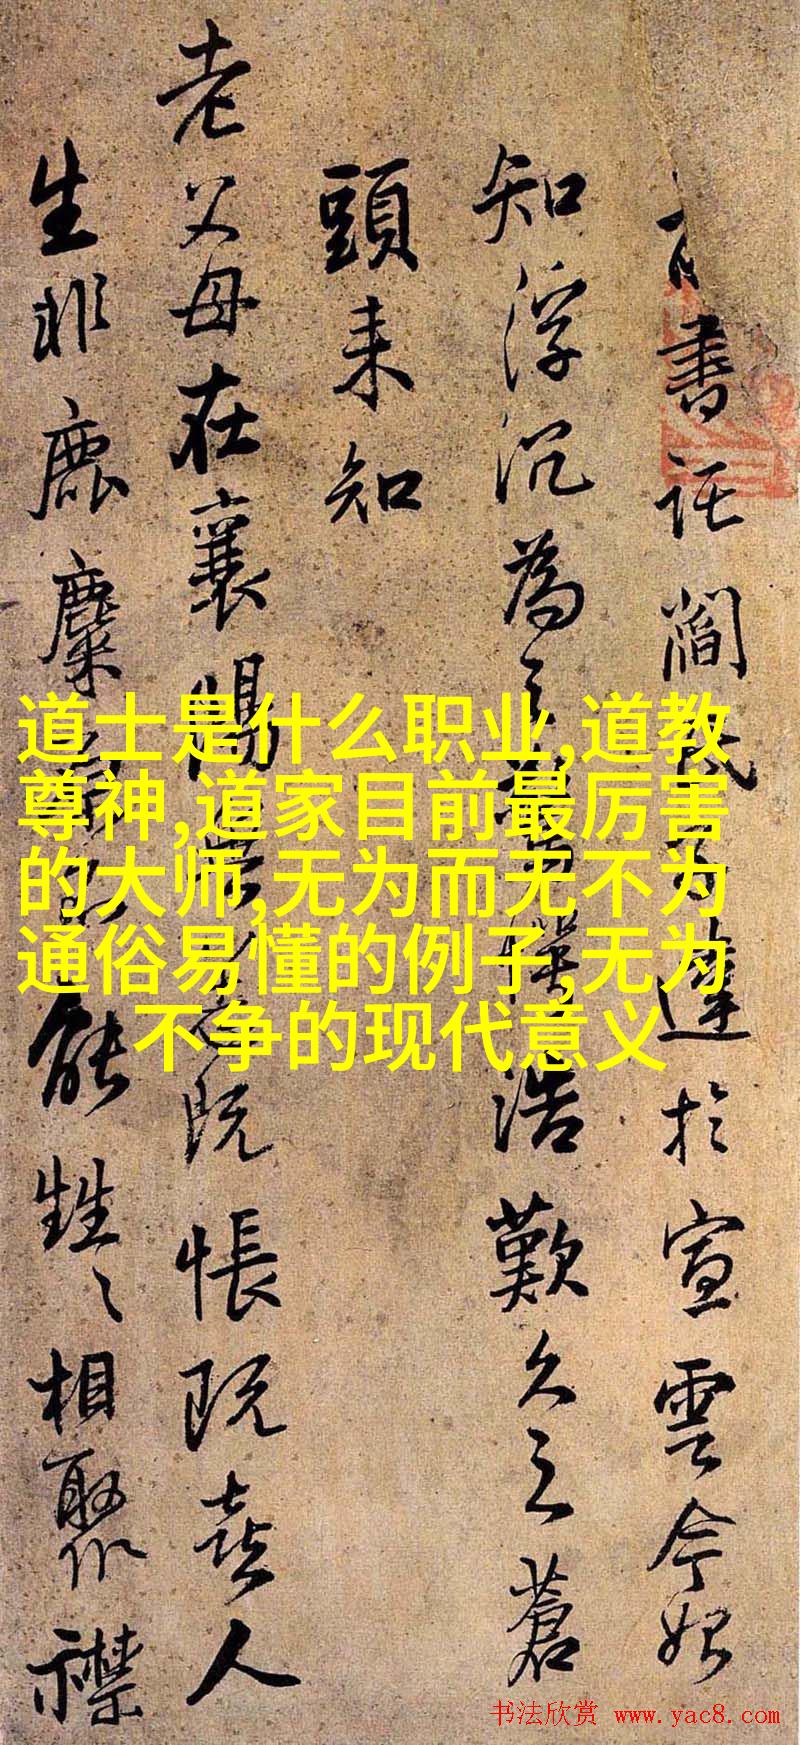 書託閻氏為達於宣雲今始
知浮沉為之浩歎久之蒼
頭未知
老父母在襄陽既悵既喜人
生非鹿麋能甡々相聚襟
道士是什么职业,道教
尊神,道家目前最厉害
的大师,无为而无不为
通俗易懂的例子,无为
不争的现代意义
书法欣赏 www.yac8.com